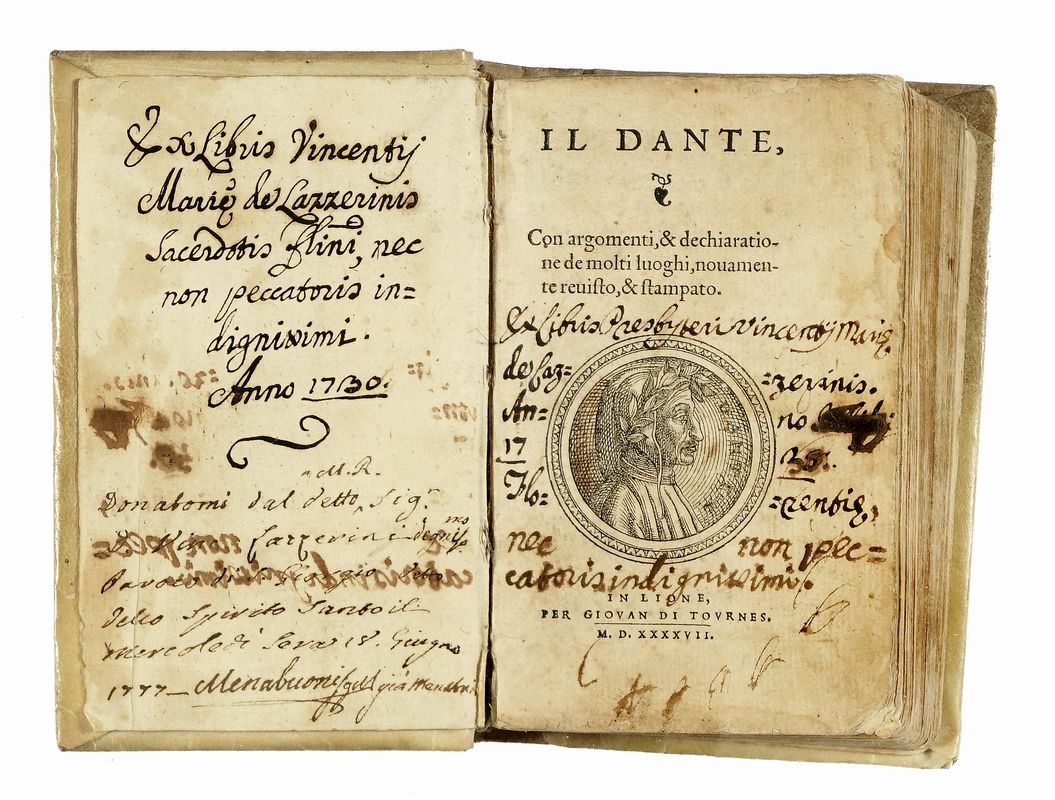 Ex Libris Vincentij
Marię de Lazzerinis
Sacerdotis Flini, nec
non peccatoris in=
dignissimi.
Anno 1730.
M. R.
Donatomi dal detto Sig.r
Lazzerini degnissmo
dello Spirito Santo il
Mercoledì Sera 18. Giugno
1777 Menabuoni
IL DANTE,
Con argomenti, & dechiaratio-
ne de molti luoghi, nouamen-
te reuisto, & stampato.
Ex Libris Presbyteri Vincentij Marię
de Laz= =zerinis.
An= no
17 35.
Flo= =rentię,
nec non pec=
catoris indignissimi.
IN LIONE,
PER GIOVAN DI TOVRNES.
M. D. XXXXVII.